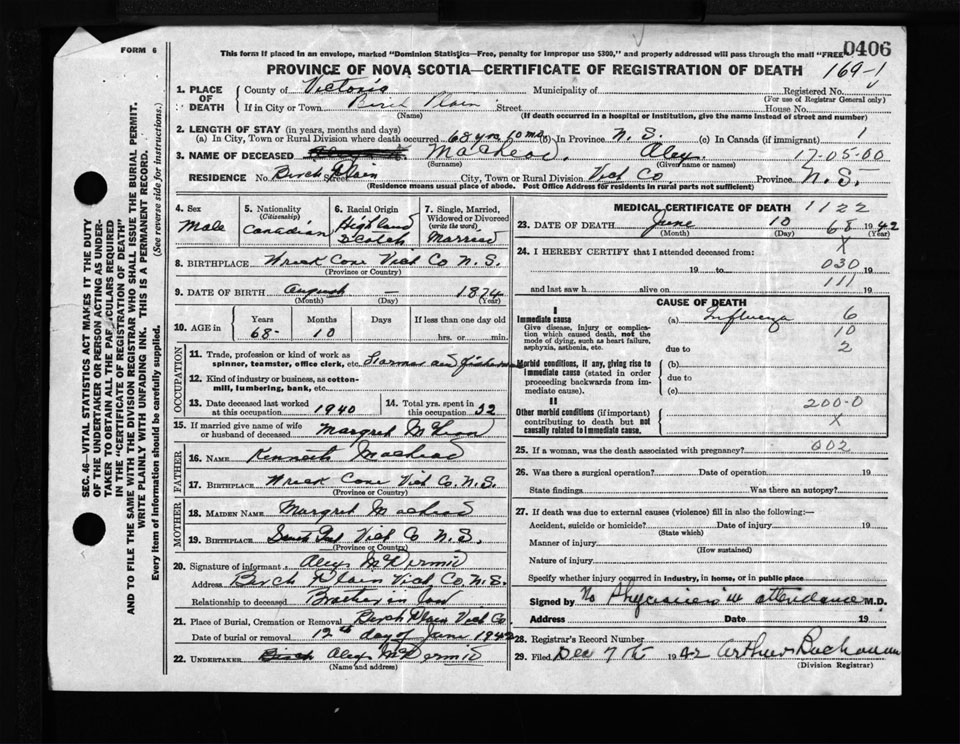 0406
FORM 6
This form if placed in an envelope, marked "Dominion Statistics—Free, penalty for improper use $300," and properly addressed will pass through the mail "FREE"
PROVINCE OF NOVA SCOTIA—CERTIFICATE OF REGISTRATION OF DEATH 169-1
1. PLACE OF DEATH County of Victoria Municipality of Registered No.
(For use of Registrar General only)
If in City or Town Birch Plain Street House No.
(Name) (If death occurred in a hospital or institution, give the name instead of street and number)
2. LENGTH OF STAY (in years, months and days)
(a) In City, Town or Rural Division where death occurred 68 yrs 10 mos (b) In Province N. S. (c) In Canada (if immigrant) 1
3. NAME OF DECEASED MacLeod, Alex. 17-05-00
(Surname) (Given name or names)
RESIDENCE No. Birch Plain Street City, Town or Rural Division Vict Co. Province N. S.
(Residence means usual place of abode. Post Office Address for residents in rural parts not sufficient)
4. Sex Male
5. Nationality (Citizenship) Canadian
6. Racial Origin Highland Scotch
7. Single, Married, Widowed or Divorced (write the word) Married
8. BIRTHPLACE Wreck Cove Vict Co N. S.
(Province or Country)
9. DATE OF BIRTH August — 1874
(Month) (Day) (Year)
10. AGE in Years Months Days If less than one day old
68- 10 hrs. or min.
OCCUPATION
11. Trade, profession or kind of work as spinner, teamster, office clerk, etc. Farmer and fisherman
12. Kind of industry or business, as cotton-mill, lumbering, bank, etc.
13. Date deceased last worked at this occupation 1940
14. Total yrs. spent in this occupation 32
15. If married give name of wife or husband of deceased Margret
FATHER
16. NAME Kenneth MacLeod
17. BIRTHPLACE Wreck Cove Vict Co. N. S.
(Province or Country)
MOTHER
18. MAIDEN NAME Margret MacLeod
19. BIRTHPLACE Vict Co N. S.
(Province or Country)
20. Signature of informant Alex McDermid
Address Birch Plain Vict Co. N. S.
Relationship to deceased Brother in law
21. Place of Burial, Cremation or Removal Birch Plain Vict Co.
Date of burial or removal 12th day of June 1942
22. UNDERTAKER Alex McDermid
(Name and address)
MEDICAL CERTIFICATE OF DEATH 1122
23. DATE OF DEATH June 10 68 1942
(Month) (Day) (Year)
24. I HEREBY CERTIFY that I attended deceased from: X
19 to 030 19
and last saw h alive on 111 19
CAUSE OF DEATH
I
Immediate cause (a) Influenza 6
Give disease, injury or complication which caused death, not the mode of dying, such as heart failure, asphyxia, asthenia, etc. 10
due to 2
Morbid conditions, if any, giving rise to immediate cause (stated in order proceeding backwards from immediate cause). (b)
due to
(c)
II
Other morbid conditions (if important) contributing to death but not causally related to immediate cause. 200-0
X
25. If a woman, was the death associated with pregnancy? 002
26. Was there a surgical operation? Date of operation 19
State findings Was there an autopsy?
27. If death was due to external causes (violence) fill in also the following:—
Accident, suicide or homicide? Date of injury 19
(State which)
Manner of injury
(How sustained)
Nature of injury
Specify whether injury occurred in industry, in home, or in public place
Signed by No Physician in attendance M.D.
Address Date 19
28. Registrar's Record Number
29. Filed Dec 7th 1942 Arthur Buchanan
(Division Registrar)
SEC. 46—VITAL STATISTICS ACT MAKES IT THE DUTY
OF THE UNDERTAKER OR PERSON ACTING AS UNDERTAKER TO OBTAIN ALL THE PARTICULARS REQUIRED
IN THE "CERTIFICATE OF REGISTRATION OF DEATH"
AND TO FILE THE SAME WITH THE DIVISION REGISTRAR WHO SHALL ISSUE THE BURIAL PERMIT.
WRITE PLAINLY WITH UNFADING INK. THIS IS A PERMANENT RECORD.
Every item of information should be carefully supplied. (See reverse side for instructions.)